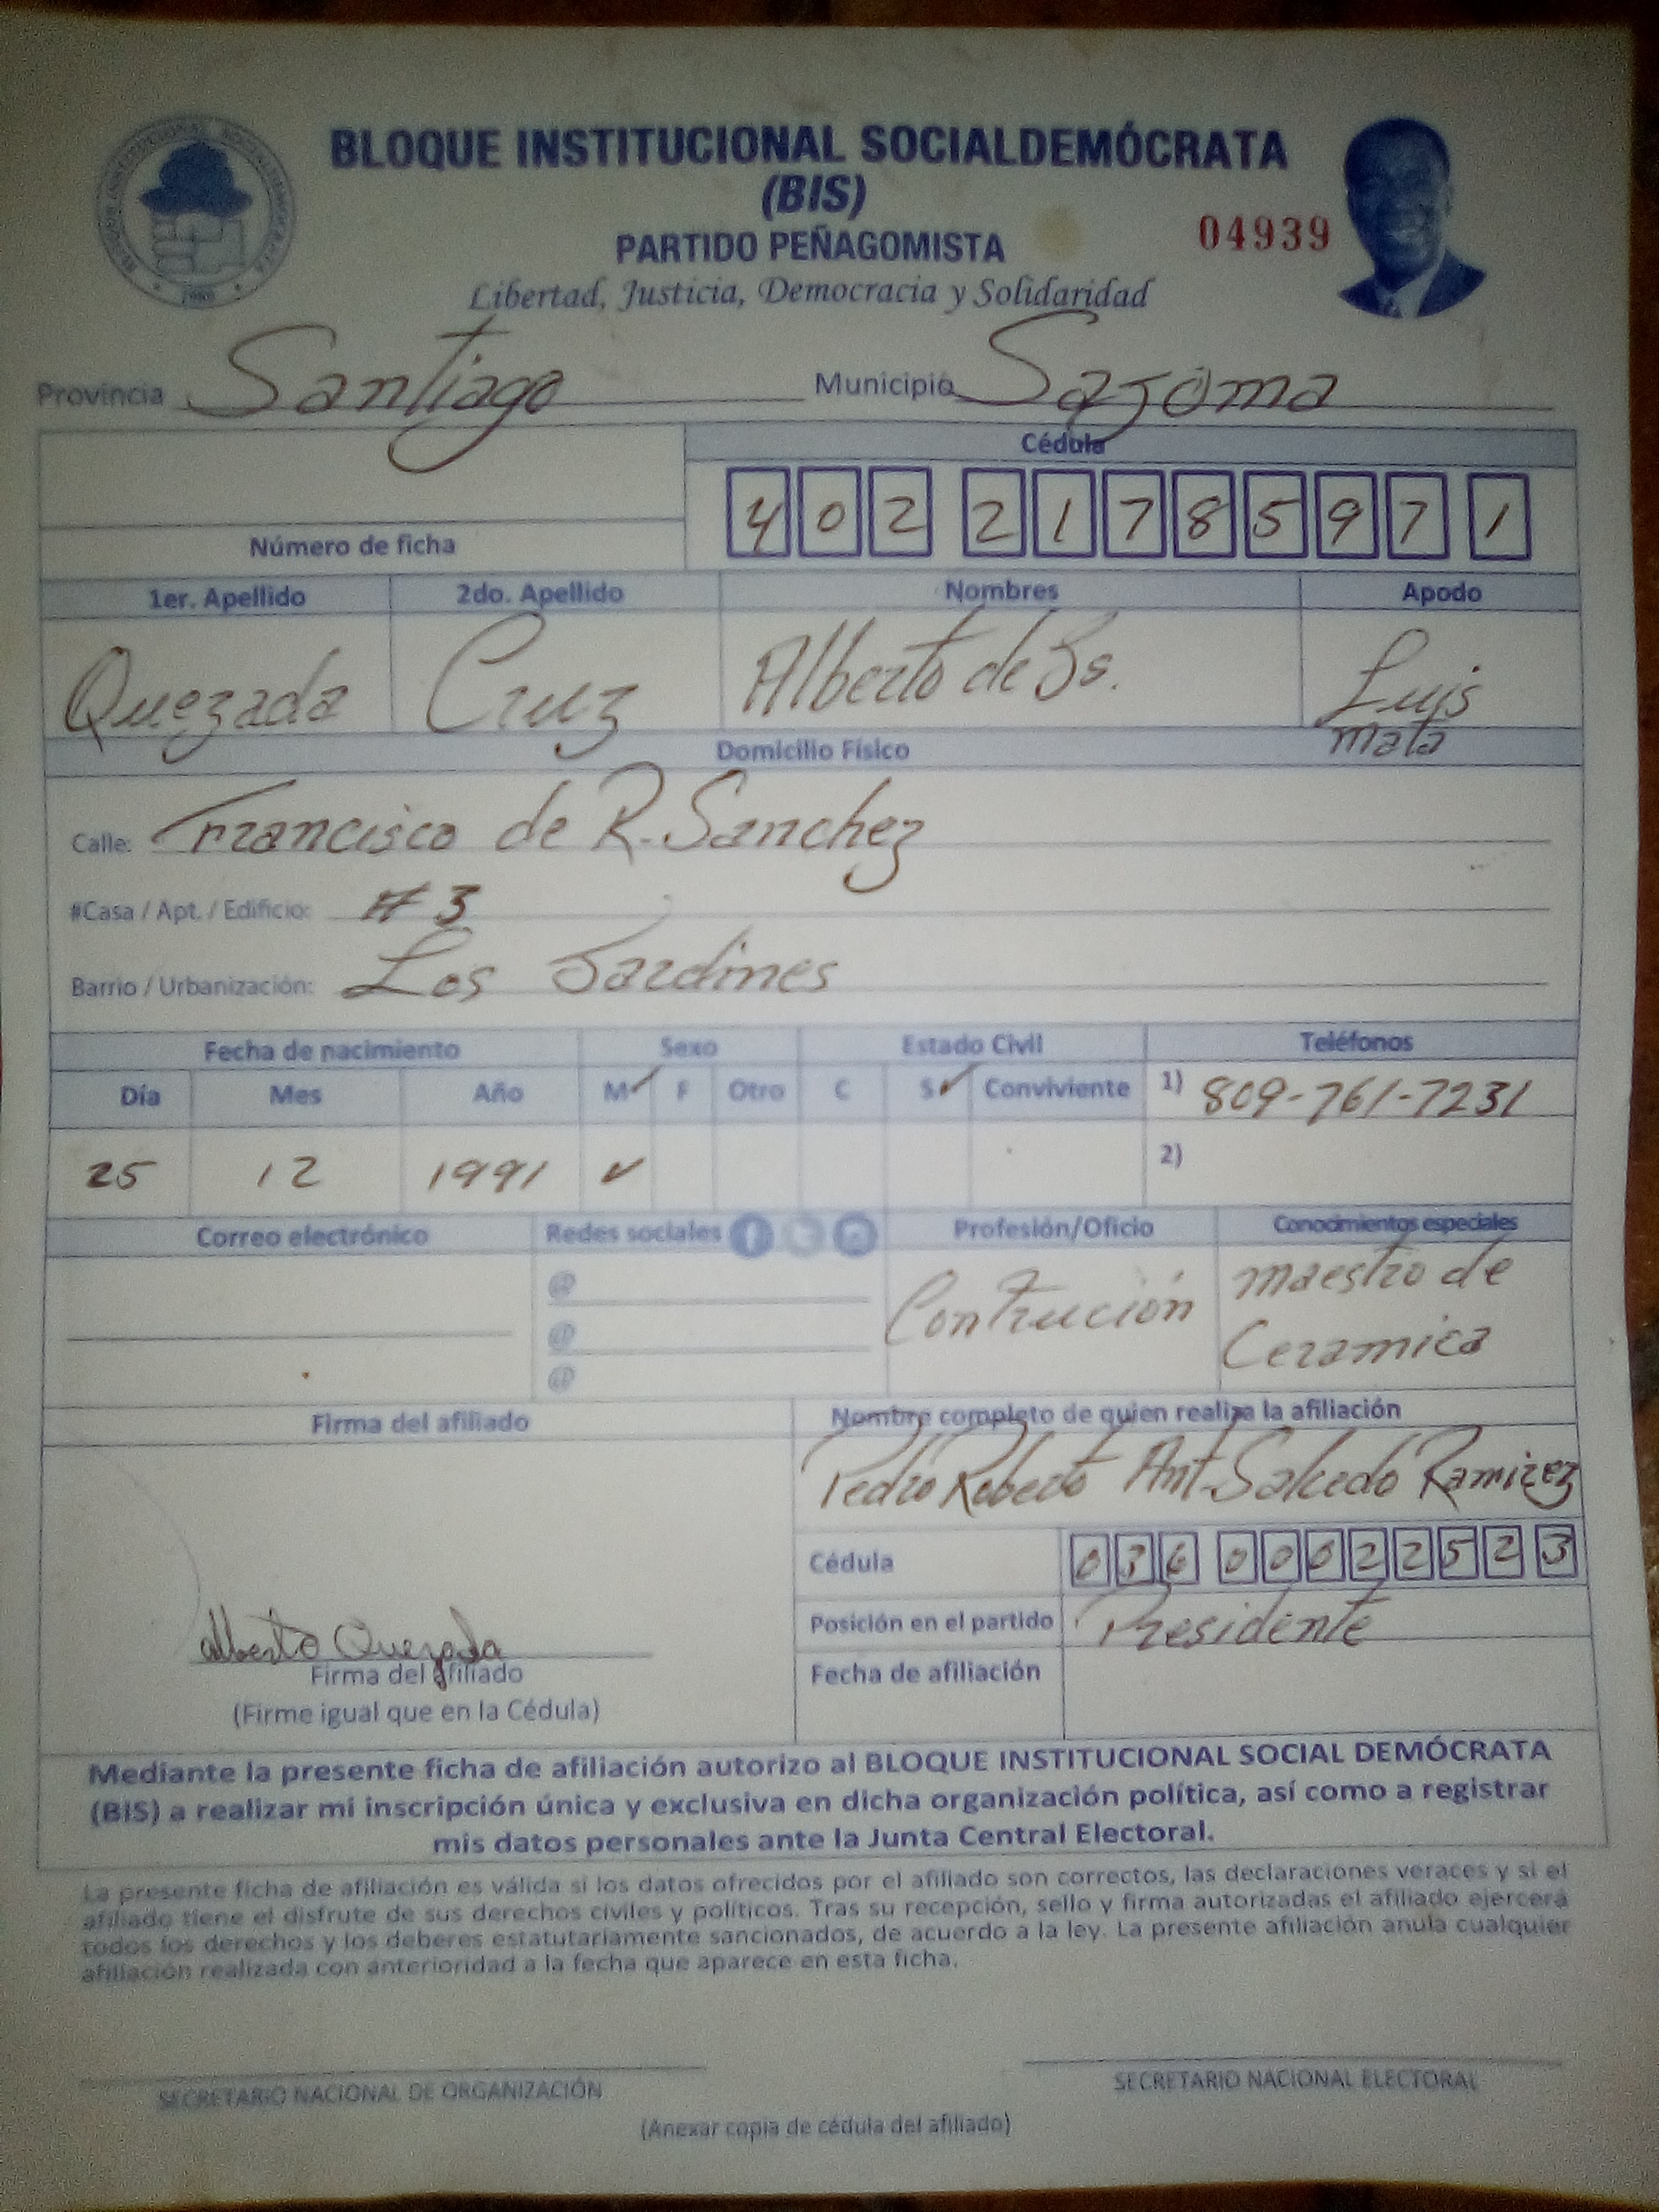 BLOQUE INSTITUCIONAL SOCIALDEMÓCRATA
(BIS)
PARTIDO PEÑAGOMISTA
04939
Libertad, Justicia, Democracia y Solidaridad
Provincia Santiago Municipio Sajoma
Cédula
402 2178597 1
Número de ficha
1er. Apellido 2do. Apellido Nombres Apodo
Quezada Cruz Alberto de Js. Luis
mata
Domicilio Físico
Calle: Francisco de R. Sanchez
#Casa / Apt. / Edificio: # 3
Barrio / Urbanización: Los Jardines
Fecha de nacimiento Sexo Estado Civil Teléfonos
Día Mes Año M ✓ F Otro C S ✓ Conviviente 1) 809-761-7231
25 12 1991 ✓ 2)
Correo electrónico Redes sociales Profesión/Oficio Conocimientos especiales
@ Contrución maestro de
@ Ceramica
@
Firma del afiliado Nombre completo de quien realiza la afiliación
Pedro Roberto Ant. Salcedo Ramirez
Cédula 036 0002252 3
Posición en el partido Presidente
alberto Quezada
Firma del afiliado Fecha de afiliación
(Firme igual que en la Cédula)
Mediante la presente ficha de afiliación autorizo al BLOQUE INSTITUCIONAL SOCIAL DEMÓCRATA
(BIS) a realizar mi inscripción única y exclusiva en dicha organización política, así como a registrar
mis datos personales ante la Junta Central Electoral.
La presente ficha de afiliación es válida si los datos ofrecidos por el afiliado son correctos, las declaraciones veraces y si el
afiliado tiene el disfrute de sus derechos civiles y políticos. Tras su recepción, sello y firma autorizadas el afiliado ejercerá
todos los derechos y los deberes estatutariamente sancionados, de acuerdo a la ley. La presente afiliación anula cualquier
afiliación realizada con anterioridad a la fecha que aparece en esta ficha.
SECRETARIO NACIONAL DE ORGANIZACIÓN SECRETARIO NACIONAL ELECTORAL
(Anexar copia de cédula del afiliado)